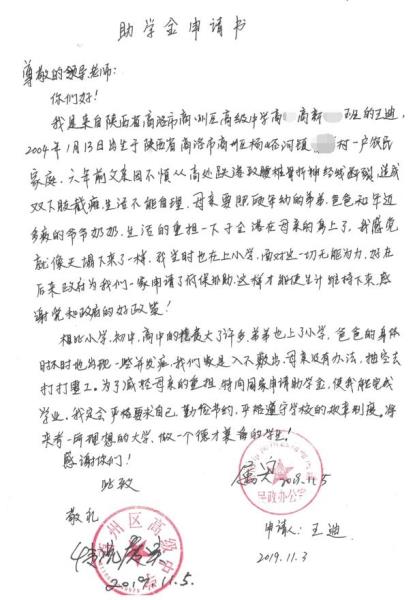 助学金申请书
尊敬的领导老师:
你们好!
我是来自陕西省商洛市商州区高级中学高 高新 班的王迪,
2004年1月13日出生于陕西省商洛市商州区杨峪河镇 村一户农民
家庭,六年前父亲因不慎从高处跌落致腰椎骨折神经线断裂,造成
双下肢截瘫,生活不能自理,母亲要照顾年幼的弟弟,爸爸和年迈
多病的爷爷奶奶,生活的重担一下子全落在母亲的身上了,我感觉
就像天塌下来了一样,我当时也在上小学,面对这一切无能为力,好在
后来政府为我们一家申请了低保补助,这样才能使生计维持下来,感
谢党和政府的好政策!
相比小学,初中,高中的花费大了许多,弟弟也上了小学,爸爸的身体
时不时也出现一些并发症,我们家是入不敷出,母亲没有办法,抽空去
打打零工。为了减轻母亲的重担,特向国家申请助学金,使我能完成
学业,我定会严格要求自己,勤俭节约,严格遵守学校的规章制度。将
来考一所理想的大学,做一个德才兼备的学生!
感谢你们!
此致
敬礼
属实
2019.11.5
民政办公
申请人:王迪
2019.11.3
州区高级中
情况属实
2019.11.5.